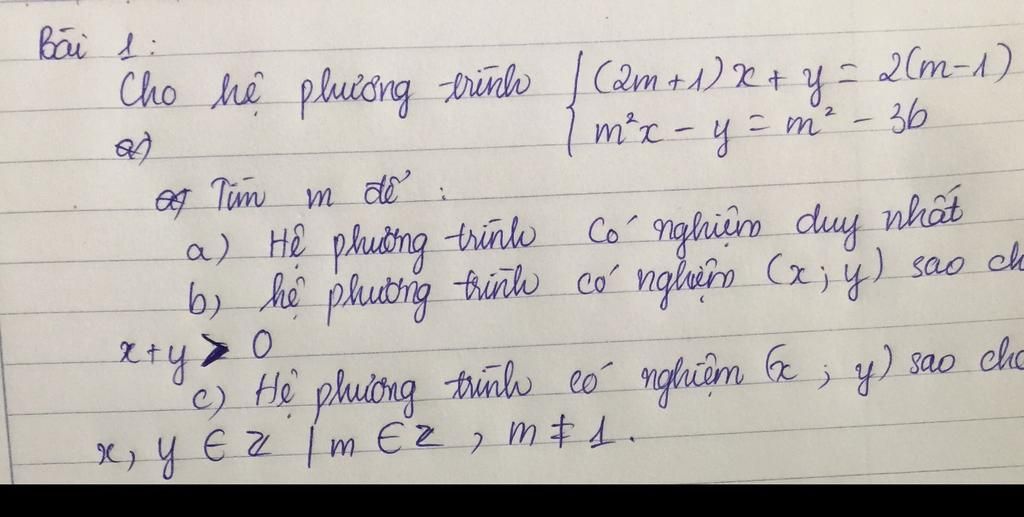 Bài 1:
Cho hệ phương trình { (2m+1)x + y = 2(m-1)
{ m²x - y = m² - 3b
a)
a) Tìm m để :
a) Hệ phương trình có nghiệm duy nhất
b) hệ phương trình có nghiệm (x; y) sao ch
x+y > 0
c) Hệ phương trình có nghiệm (x ; y) sao cho
x, y ∈ Z | m ∈ Z , m ≠ 1.